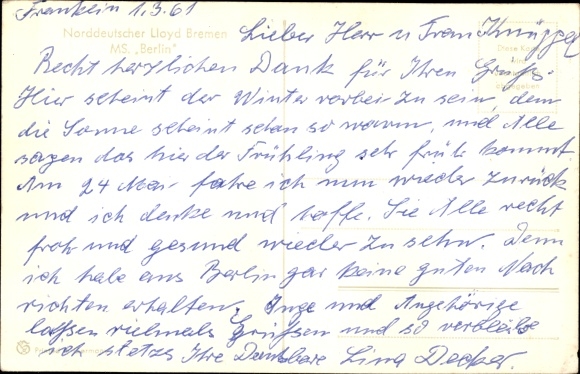 Franklin 1.3.61
Norddeutscher Lloyd Bremen
MS. „Berlin"
Lieber Herr u Frau Knüppel
Diese Karte
Recht herzlichen Dank für Ihren Gruß.
Hier scheint der Winter vorbei zu sein, denn
die Sonne scheint schon so warm, und Alle
sagen das hier der Frühling sehr früh kommt.
Am 24 Mai fahre ich nun wieder zurück
und ich denke und hoffe. Sie Alle recht
froh und gesund wieder zu sehn. Denn
ich habe aus Berlin gar keine guten Nach
richten erhalten. Inge und Angehörige
laßen vielmals Grüssen und so verbleibe
ich stetz Ihre Dankbare Lina Decker.